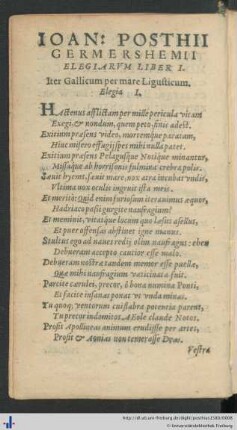 IOAN: POSTHII
GERMERSHEMII
ELEGIARVM LIBER I.
Iter Gallicum per mare Ligusticum.
Elegia I.
HActenus afflictam per mille pericula vitam
Exegi, & nondum, quem peto, finis adest.
Exitium præsens video, mortemque paratam,
Hinc misero effugij spes mihi nulla patet.
Exitium præsens Pelagusque Notique minantur,
Missaque ab horrisonis fulmina crebra polis.
Sæuit hyems, sæuit mare, nox atra incubat vndis,
Vltima nox oculis ingruit ista meis.
Et meritò: quid enim furiosum iter animus æquor,
Hadriaco passi gurgite naufragium?
Et meminit, vitatque locum quo læsus asellus,
Et puer offensas abstinet igne manus.
Stultus ego ad naues redij olim naufragus: eheu
Debueram accepto cautior esse malo.
Debueram vestræ tandem memor esse puellæ,
Quæ mihi naufragium vaticinata fuit.
Parcite cærulei, precor, ô bona numina Ponti,
Et facite insanas ponat vt vnda minas.
Tu quoque, ventorum cui flabra potentia parent,
Tu precor indomitos Æole claude Notos.
Prosit Apollineas animum erudisse per artes,
Prosit & Aonias non temerasse Deas.
Vestra
http://dl.ub.uni-freiburg.de/diglit/posthius1580/0009
© Universitätsbibliothek Freiburg